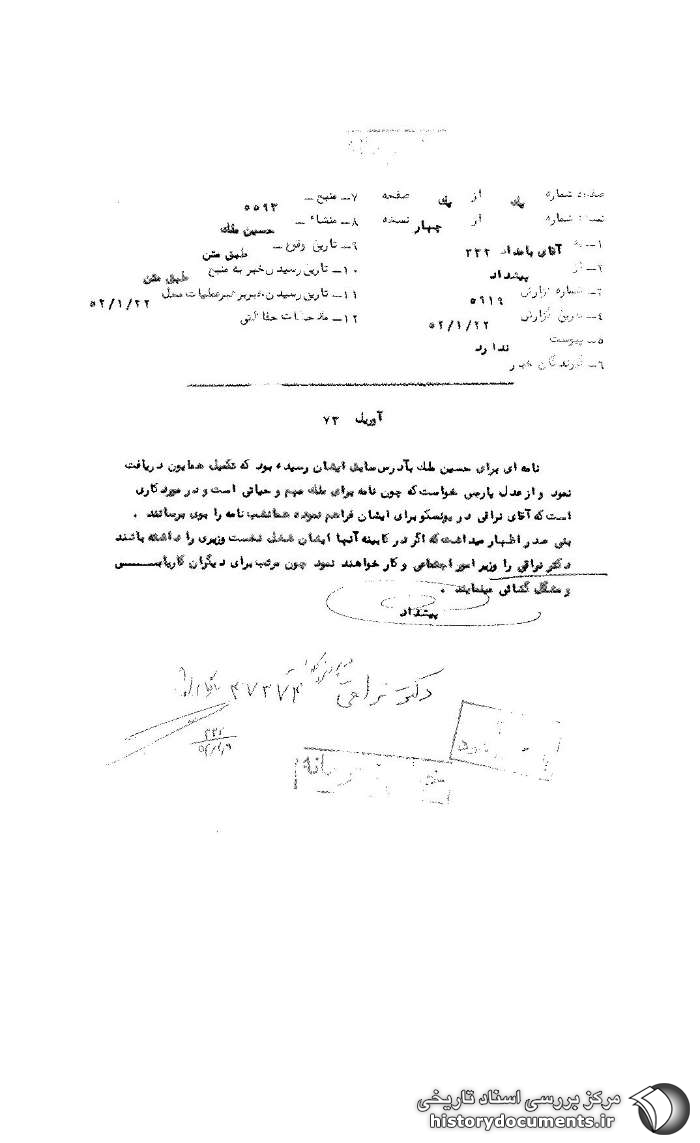 صفحه شماره یک از یک صفحه
نسخه شماره از چهار نسخه
۱ـ به آقای بامداد ۳۳۲
۲ـ از پیشداد
۳ـ شماره گزارش ۵۹۱۹
۴ـ تاریخ گزارش ۵۲/۱/۲۲
۵ـ پیوست ندارد
۶ـ گیرندگان خبر
۷ـ منبع ـ ۵۵۹۳
۸ـ منشاء ـ حسین ملک
۹ـ تاریخ وقوع ـ طبق متن
۱۰ـ تاریخ رسیدن خبر به منبع طبق متن
۱۱ـ تاریخ رسیدن خبر به رهبر عملیات محل ۵۲/۱/۲۲
۱۲ـ ملاحظات حفاظتی
آوریل ۷۳
نامه ای برای حسین ملک بآدرس سابق ایشان رسیده بود که تکمیل همایون دریافت
نمود و از عدل پارسی خواست که چون نامه برای ملک مهم و حیاتی است و در مورد کاری
است که آقای نراقی در یونسکو برای ایشان فراهم نموده همانشب نامه را بوی برسانند .
بنی صدر اظهار میداشت که اگر در کابینه آنها ایشان شغل نخست وزیری را داشته باشند
دکتر نراقی را وزیر امور اجتماعی و کار خواهند نمود چون مرتب برای دیگران کاریابی
و مشگل گشائی مینمایند .
پیشداد
دکتر نراقی ۴۷۲۷۴
۳۳۲
مرکز بررسی اسناد تاریخی
historydocuments.ir